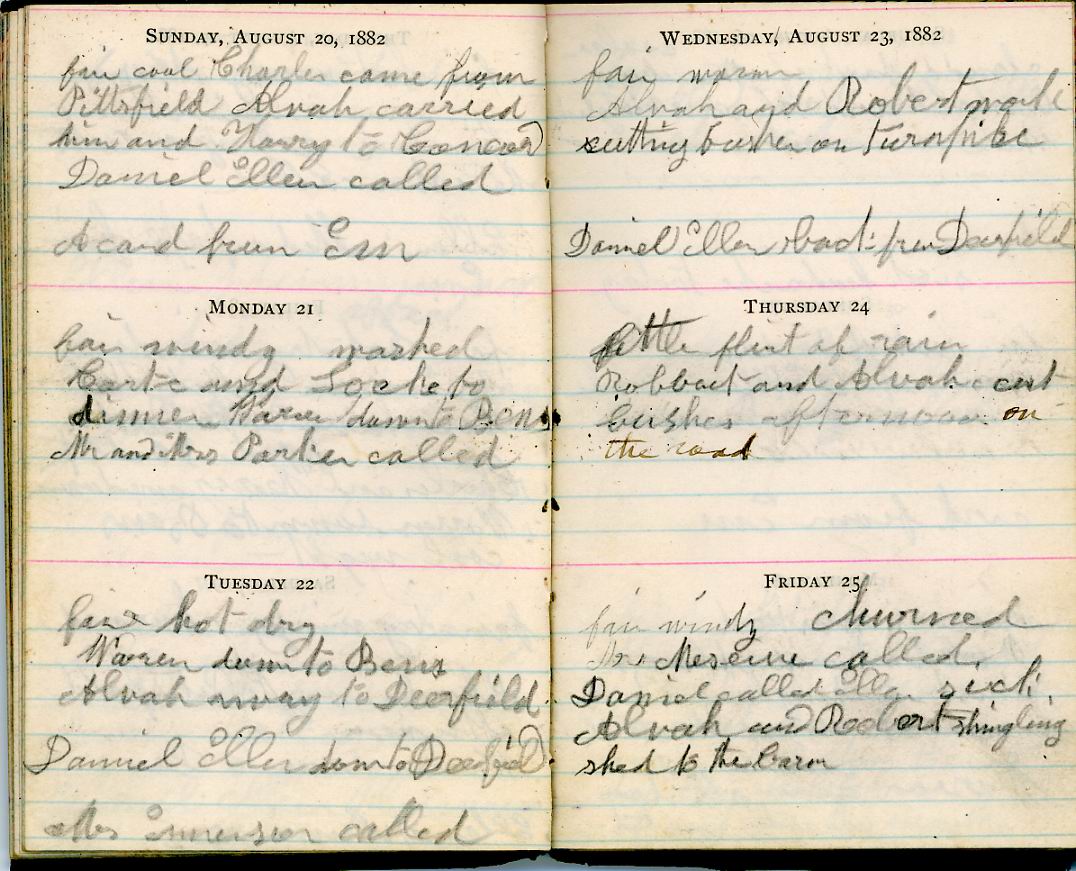 SUNDAY, AUGUST 20, 1882
fair cool Charles came from
Pittsfield Alvah carried
him and Harry to Concord
Daniel Ellen called
A card from Em
MONDAY 21
fair windy washed
to
dinner Warren down to Bens
Mr and Mrs Parker called
TUESDAY 22
fair hot dry
Warren down to Bens
Alvah away to Deerfield
Daniel Ellen down to Deerfield
Mrs Emmerson called
WEDNESDAY, AUGUST 23, 1882
fair warm
Alvah and Robert work
cutting bushes on turnpike
Daniel Ellen back from Deerfield
THURSDAY 24
little flirt of rain
Robbart and Alvah cut
bushes afternoon on
the road
FRIDAY 25
fair windy churned
Mrs Meserve called
Daniel called Ellen sick
Alvah and Robert shingling
shed to the barn